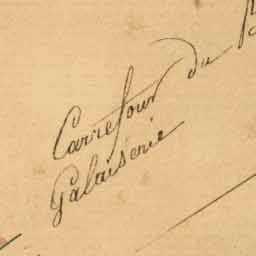 Carrefour du
Galaiserie